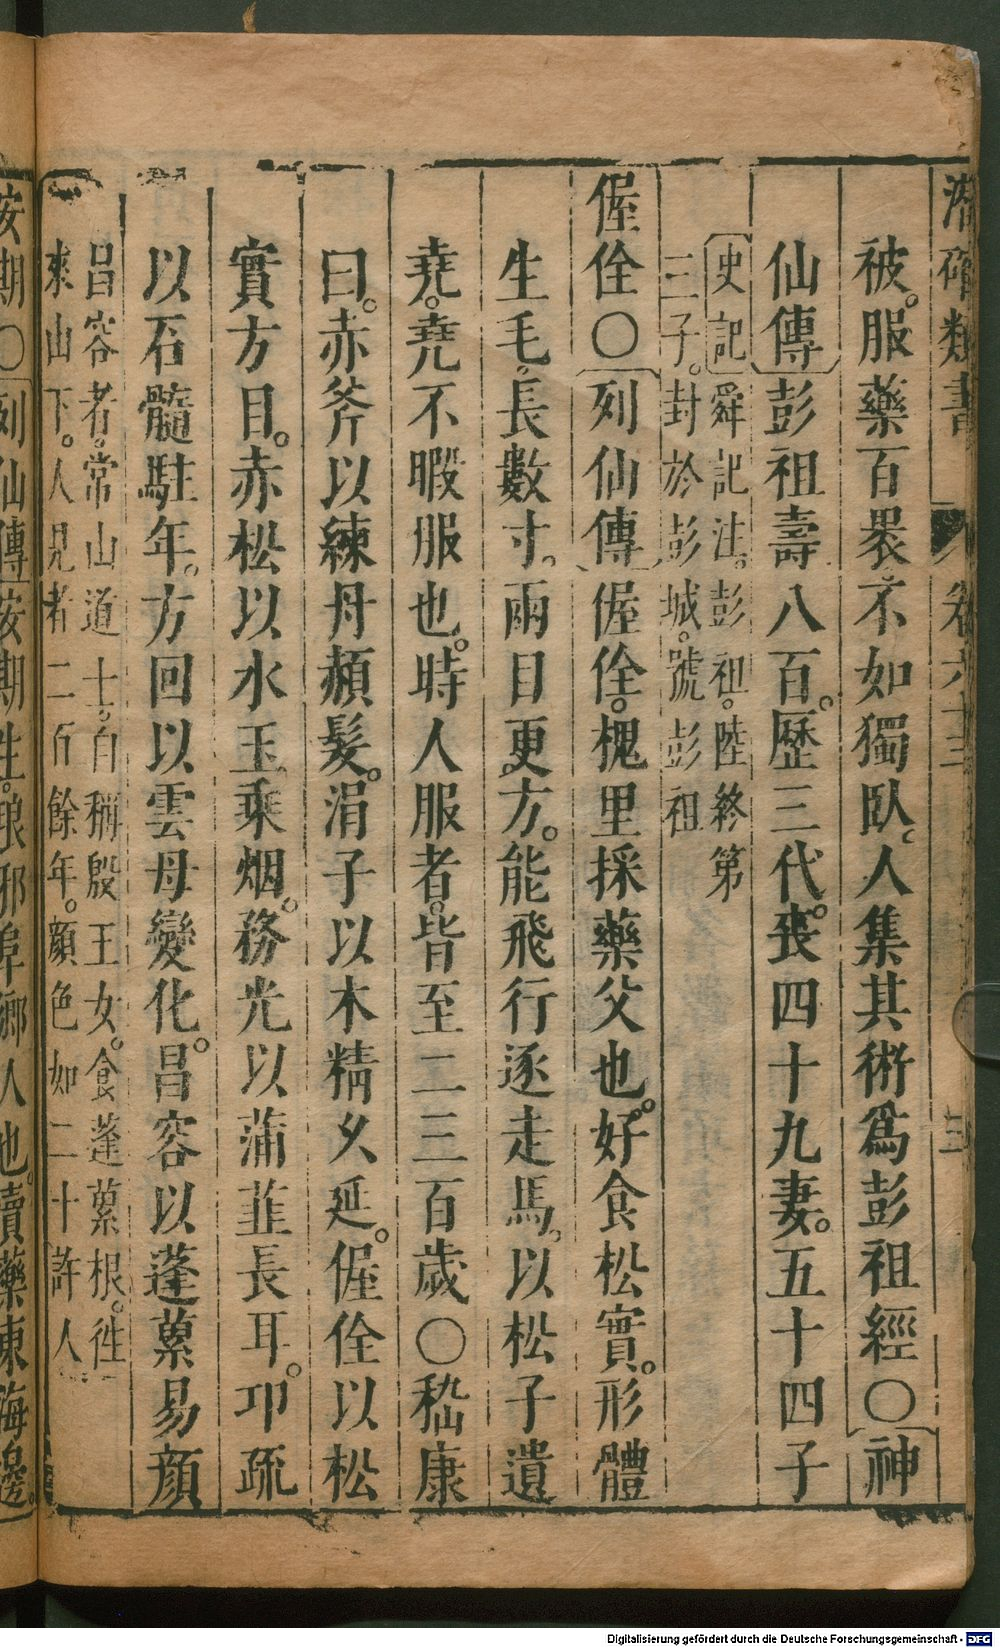 潛確類書 卷六十三 三
被。服藥百裹。不如獨臥。人集其術爲彭祖經〇神
仙傳彭祖壽八百。歷三代。喪四十九妻。五十四子
史記舜記注。彭祖。陸終第
三子。封於彭城。號彭祖
偓佺〇列仙傳偓佺。槐里採藥父也。好食松實。形體
生毛。長數寸。兩目更方。能飛行逐走馬。以松子遺
堯。堯不暇服也。時人服者。皆至二三百歲〇嵇康
曰。赤斧以練丹頳髮。涓子以木精久延。偓佺以松
實方目。赤松以水玉乘烟。務光以蒲韮長耳。邛疏
以石髓駐年。方回以雲母變化。昌容以蓬蔂易顔
昌容者。常山道士。自稱殷王女。食蓬蔂根。徃
來山下。人見者二百餘年。顔色如二十許人
安期〇列仙傳安期生。琅邪阜鄉人也。賣藥東海邊。
Digitalisierung gefördert durch die Deutsche Forschungsgemeinschaft - DFG